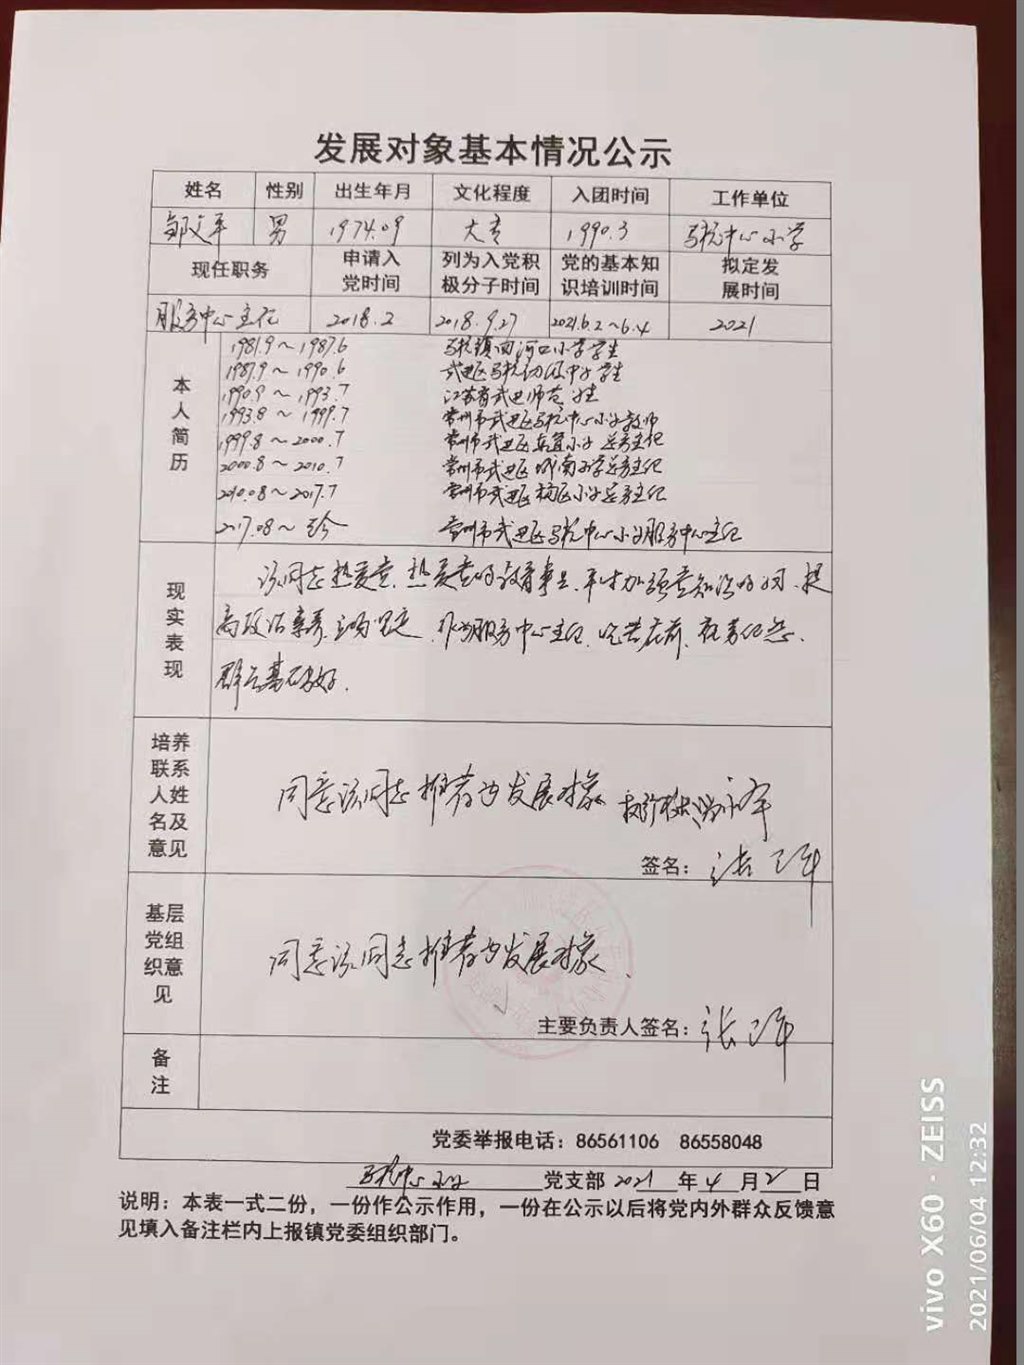 发展对象基本情况公示
姓名 性别 出生年月 文化程度 入团时间 工作单位
邹文平 男 1974.09 大专 1990.3 马杭中心小学
现任职务 申请入党时间 列为入党积极分子时间 党的基本知识培训时间 拟定发展时间
服务中心主任 2018.2 2018.9.27 2021.6.2~6.4 2021
本人简历
1981.9~1987.6 马杭镇 河口小学学生
1987.9~1990.6 武进区马杭初级中学学生
1990.9~1993.7 江苏省武进师范 学生
1993.8~1999.7 常州市武进区马杭中心小学教师
1999.8~2000.7 常州市武进区 小学总务主任
2000.8~2010.7 常州市武进区城南小学总务主任
2010.08~2017.7 常州市武进区 小学总务主任
2017.08~至今 常州市武进区马杭中心小学服务中心主任
现实表现
该同志热爱党、热爱党的教育事业、平时加强党知识的学习、提
高政治素养、立场坚定、作为服务中心主任、吃苦在前、任劳任怨、
群众基础好.
培养联系人姓名及意见
同意该同志推荐为发展对象
签名:
基层党组织意见
同意该同志推荐为发展对象.
主要负责人签名:
备注
党委举报电话:86561106 86558048
马杭中心小学 党支部 2021 年 4 月 2 日
说明:本表一式二份,一份作公示作用,一份在公示以后将党内外群众反馈意
见填入备注栏内上报镇党委组织部门。
vivo X60 · ZEISS
2021/06/04 12:32